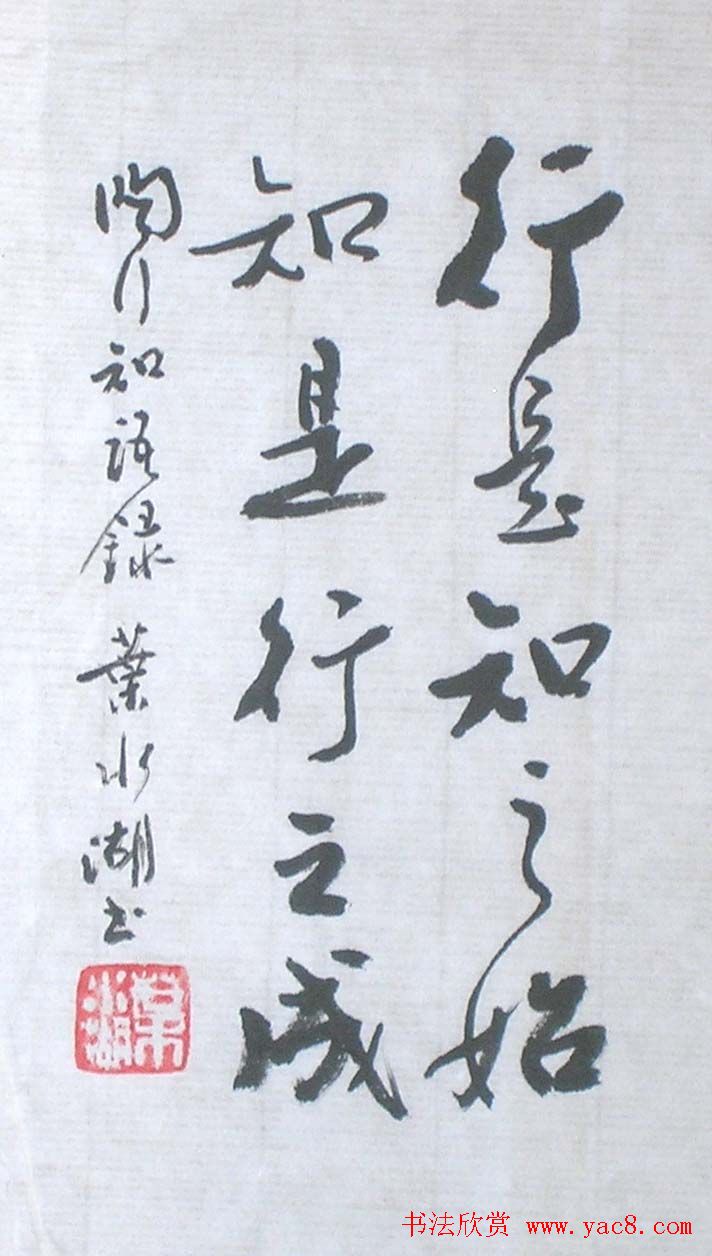 行是知之始
知是行之成
陶行知语錄 葉水湖书
葉水湖
书法欣赏 www.yac8.com